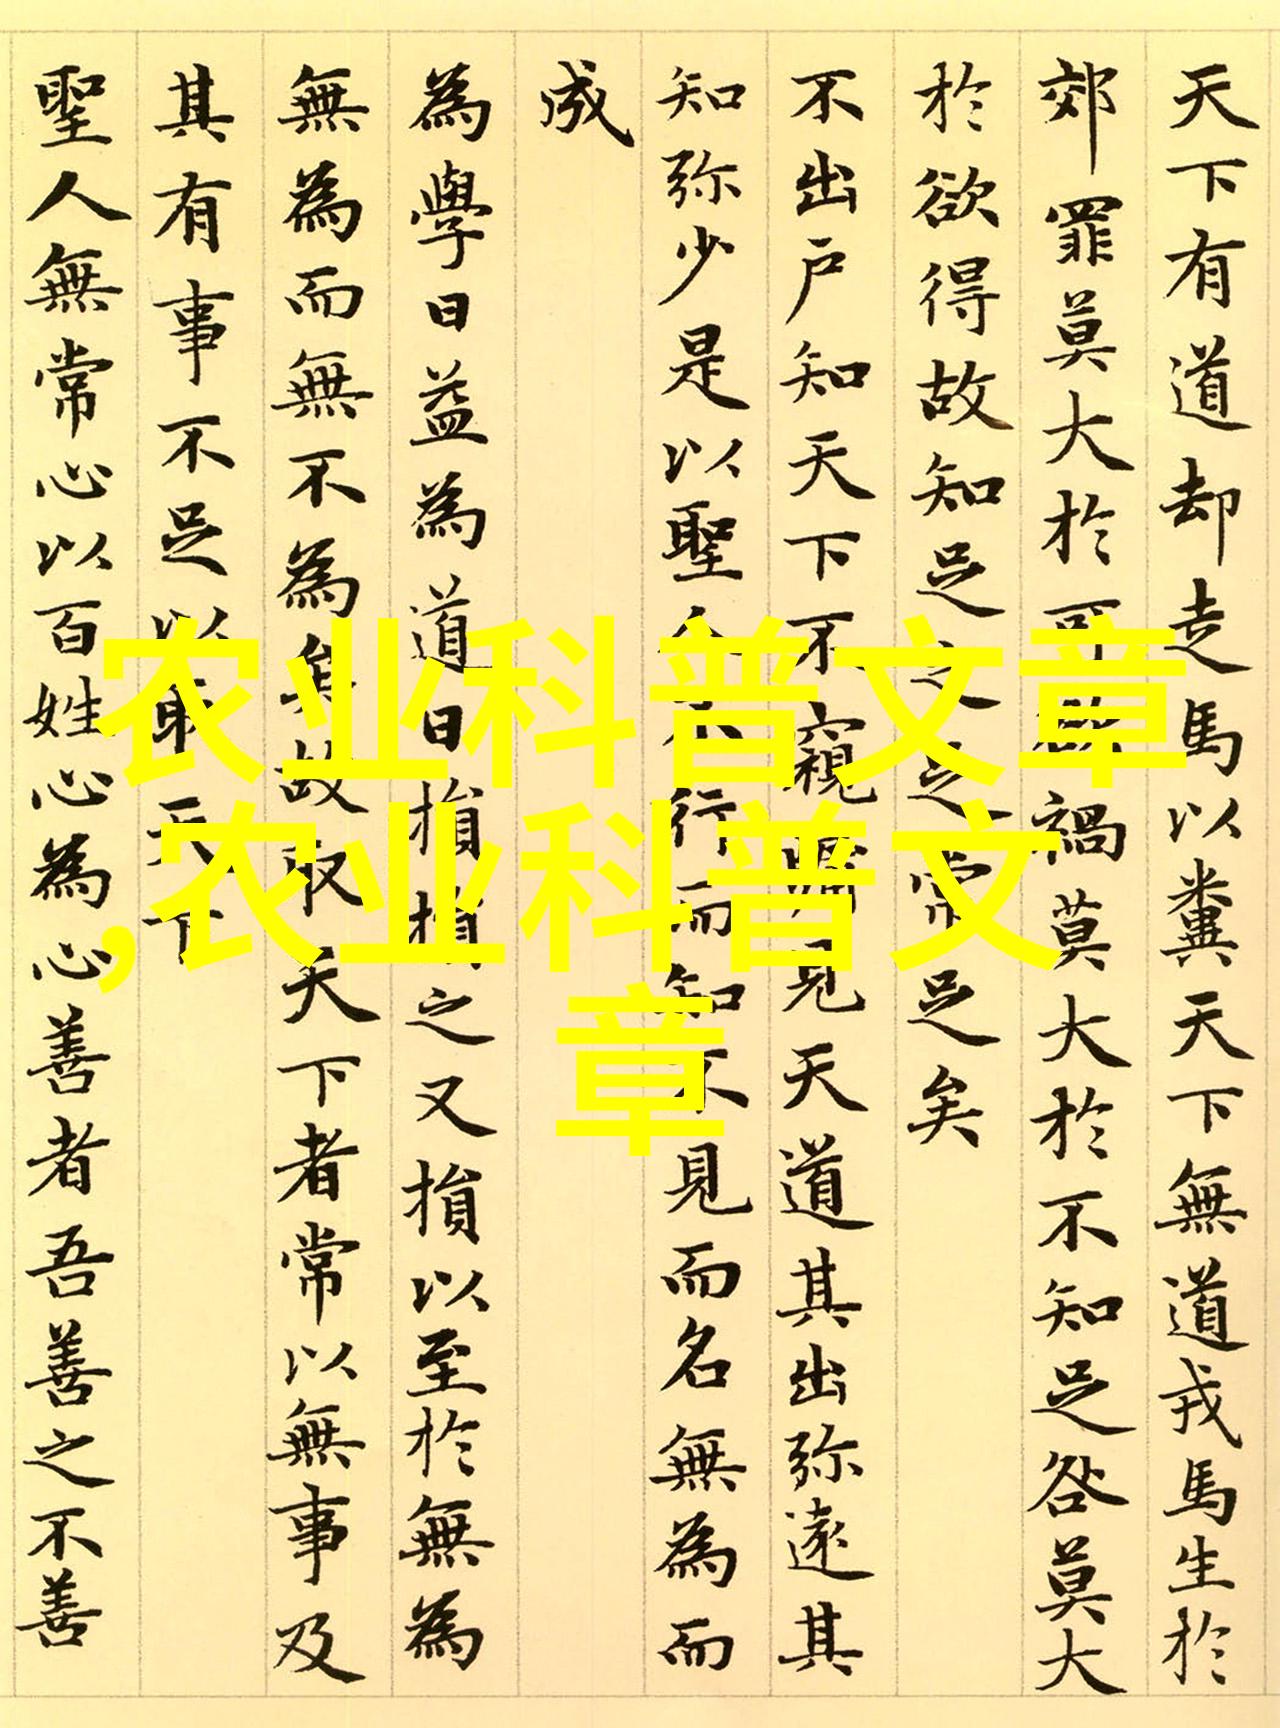 天下有道却走馬以糞天下無道戎馬生於
郊罪莫大於可欲禍莫大於不知足咎莫大
於欲得故知足之足常足矣
不出戶知天下不窺牖見天道其出弥遠其
知弥少是以聖人不行而知不見而名無為而
成
為學日益為道日損損之又損以至於無為
無為而無不為矣故取天下者常以無事及
其有事不足以取天下
聖人無常心以百姓心為心善者吾善之不善
农业科普文章
,农业科普文
章